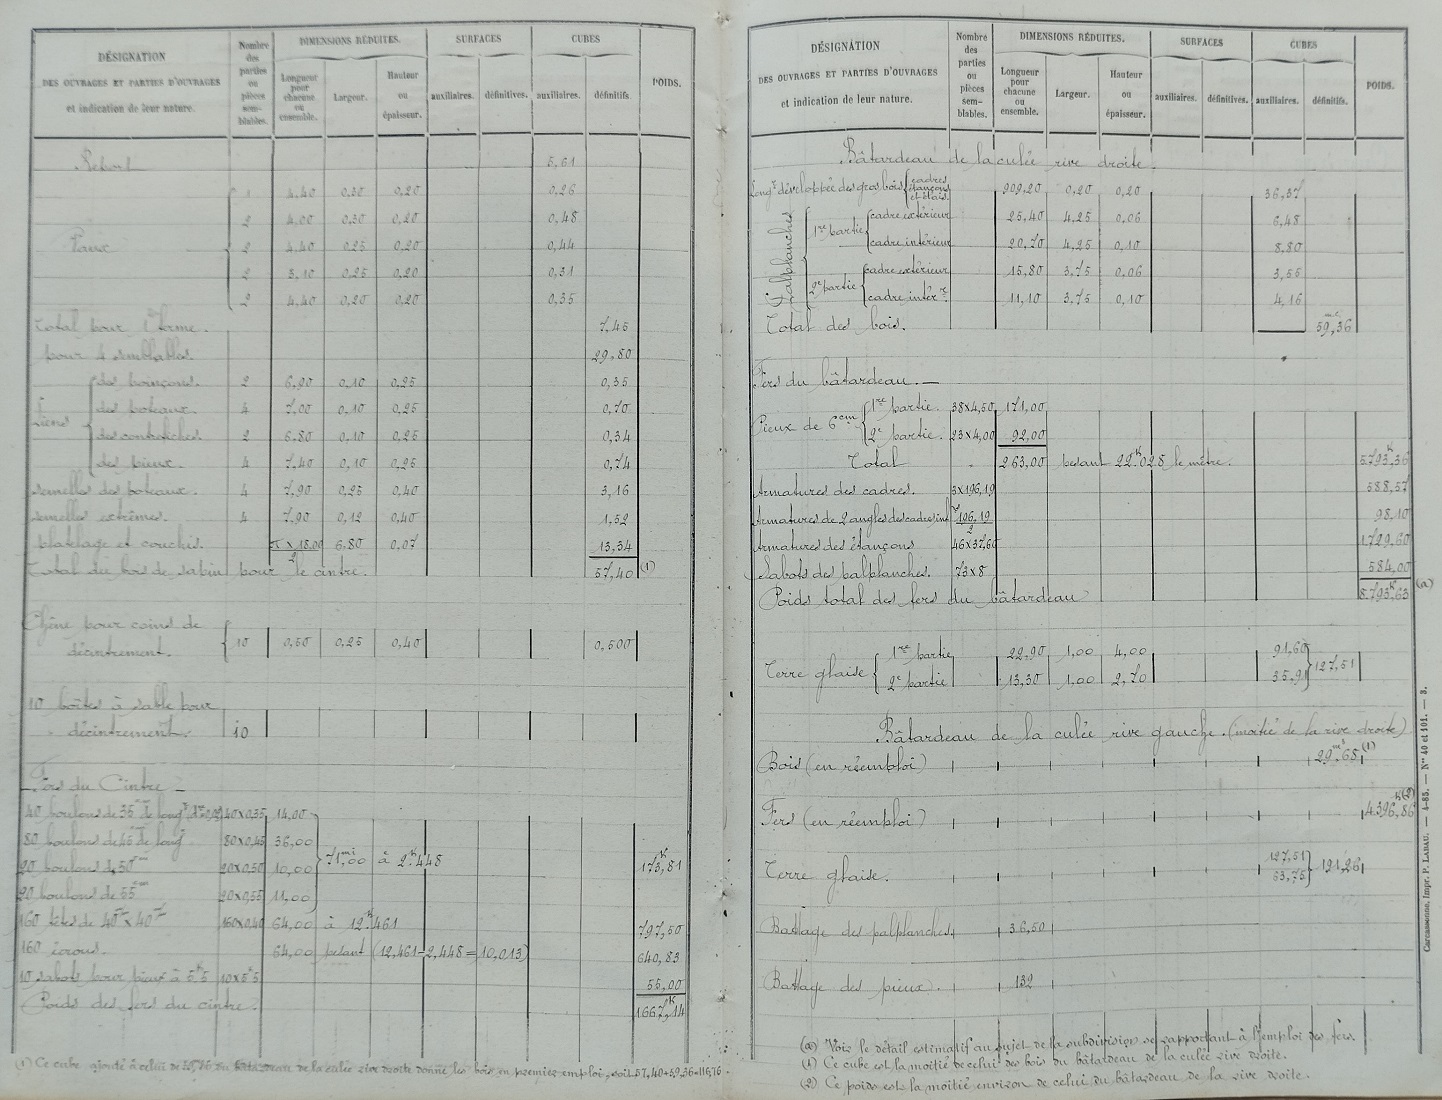 DÉSIGNATION
DES OUVRAGES ET PARTIES D'OUVRAGES
et indication de leur nature.
Nombre des parties ou pièces semblables.
DIMENSIONS RÉDUITES.
Longueur pour chacune ou ensemble.
Largeur.
Hauteur ou épaisseur.
SURFACES
auxiliaires.
définitives.
CUBES
auxiliaires.
définitifs.
POIDS.
Report 5,61
1 4,40 0,30 0,20 0,26
2 4,00 0,30 0,20 0,48
2 4,40 0,25 0,20 0,44
2 3,10 0,25 0,20 0,31
2 4,40 0,20 0,20 0,35
Total pour 1 ferme. 7,45
pour 4 semblables. 29,80
Liens
des poinçons. 2 6,90 0,10 0,25 0,35
des poteaux. 4 7,00 0,10 0,25 0,70
des contrefiches. 2 6,80 0,10 0,25 0,34
des pieux. 4 7,40 0,10 0,25 0,74
semelles des poteaux. 4 7,90 0,25 0,40 3,16
semelles extrêmes. 4 7,90 0,12 0,40 1,52
platelage et couchis. π×18,00/2 6,80 0,07 13,34
Total du bois de sapin pour le cintre. 57,40 (1)
Chêne pour coins de
décintrement. 10 0,50 0,25 0,40 0,500
10 boîtes à sable pour
décintrement. 10
Fers du Cintre
40 boulons de 35cm de long 40×0,35 14,00
80 boulons de 45cm de long 80×0,45 36,00
20 boulons de 50cm 20×0,50 10,00
71,00 à 2k448 173k,81
20 boulons de 55cm 20×0,55 11,00
160 têtes de 40 × 40 160×0,40 64,00 à 12k461 797,50
160 écrous. 64,00 pesant (12,461-2,448 = 10,013) 640,83
10 sabots pour pieux à 5k5 10×5k5 55,00
Poids des fers du cintre. 1667k,14
(1) Ce cube ajouté à celui de 59,36 du bâtardeau de la culée rive droite donne les bois en premier emploi, soit 57,40+59,36=116,76.
DÉSIGNATION
DES OUVRAGES ET PARTIES D'OUVRAGES
et indication de leur nature.
Nombre des parties ou pièces semblables.
DIMENSIONS RÉDUITES.
Longueur pour chacune ou ensemble.
Largeur.
Hauteur ou épaisseur.
SURFACES
auxiliaires.
définitives.
CUBES
auxiliaires.
définitifs.
POIDS.
Bâtardeau de la culée rive droite.
Longr développée des gros bois cadres étançons et étais. 909,20 0,20 0,20 36,37
Palplanches
1re partie cadre extérieur 25,40 4,25 0,06 6,48
cadre intérieur 20,70 4,25 0,10 8,80
2e partie cadre extérieur 15,80 3,75 0,06 3,55
cadre intérr. 11,10 3,75 0,10 4,16
Total des bois. 59,36
Fers du bâtardeau.
Pieux de 6cm
1re partie. 38×4,50 171,00
2e partie. 23×4,00 92,00
Total 263,00 pesant 22k.028 le mètre. 5793k,36
Armatures des cadres. 3×196,19 588,57
Armatures de 2 angles des cadres int 196,19/2 98,10
Armatures des étançons 46×37,60 1729,60
Sabots des palplanches. 73×8 584,00
Poids total des fers du bâtardeau 8.793k,63 (a)
Terre glaise
1re partie 22,90 1,00 4,00 91,60
127,51
2e partie 13,30 1,00 2,70 35,91
Bâtardeau de la culée rive gauche. (moitié de la rive droite)
Bois (en réemploi) 29m3,68 (1)
Fers (en réemploi) 4396k,86 (2)
Terre glaise. 127,51
63,75 191,26
Battage des palplanches, 36,50
Battage des pieux. 132
(a) Voir le détail estimatif au sujet de la subdivision se rapportant à l'emploi des fers.
(1) Ce cube est la moitié de celui des bois du bâtardeau de la culée rive droite.
(2) Ce poids est la moitié environ de celui du bâtardeau de la rive droite.
Carcassonne, Impr. P. LABAU. — 4-85. — Nos 40 et 101. — 3.